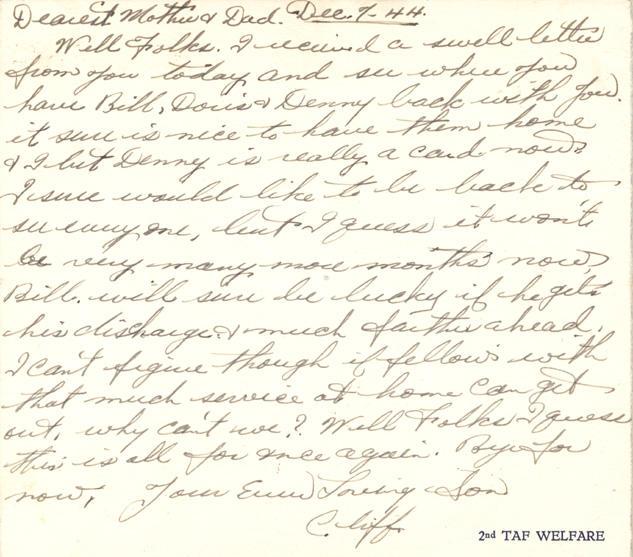 Dearest Mother & Dad. Dec. 7-44.
Well Folks. I received a swell letter
from you today and see where you
have Bill, Doris & Denny back with you.
it sure is nice to have them home
& I bet Denny is really a card now.
I sure would like to be back to
see everyone, but I guess it won't
be very many more months now
Bill. will sure be lucky if he gets
his discharge. & much farther ahead.
I can't figure though if fellows with
that much service at home can get
out, why can't we? Well Folks I guess
this is all for once again. Bye for
now, Your Ever Loving Son
Cliff
2nd TAF WELFARE